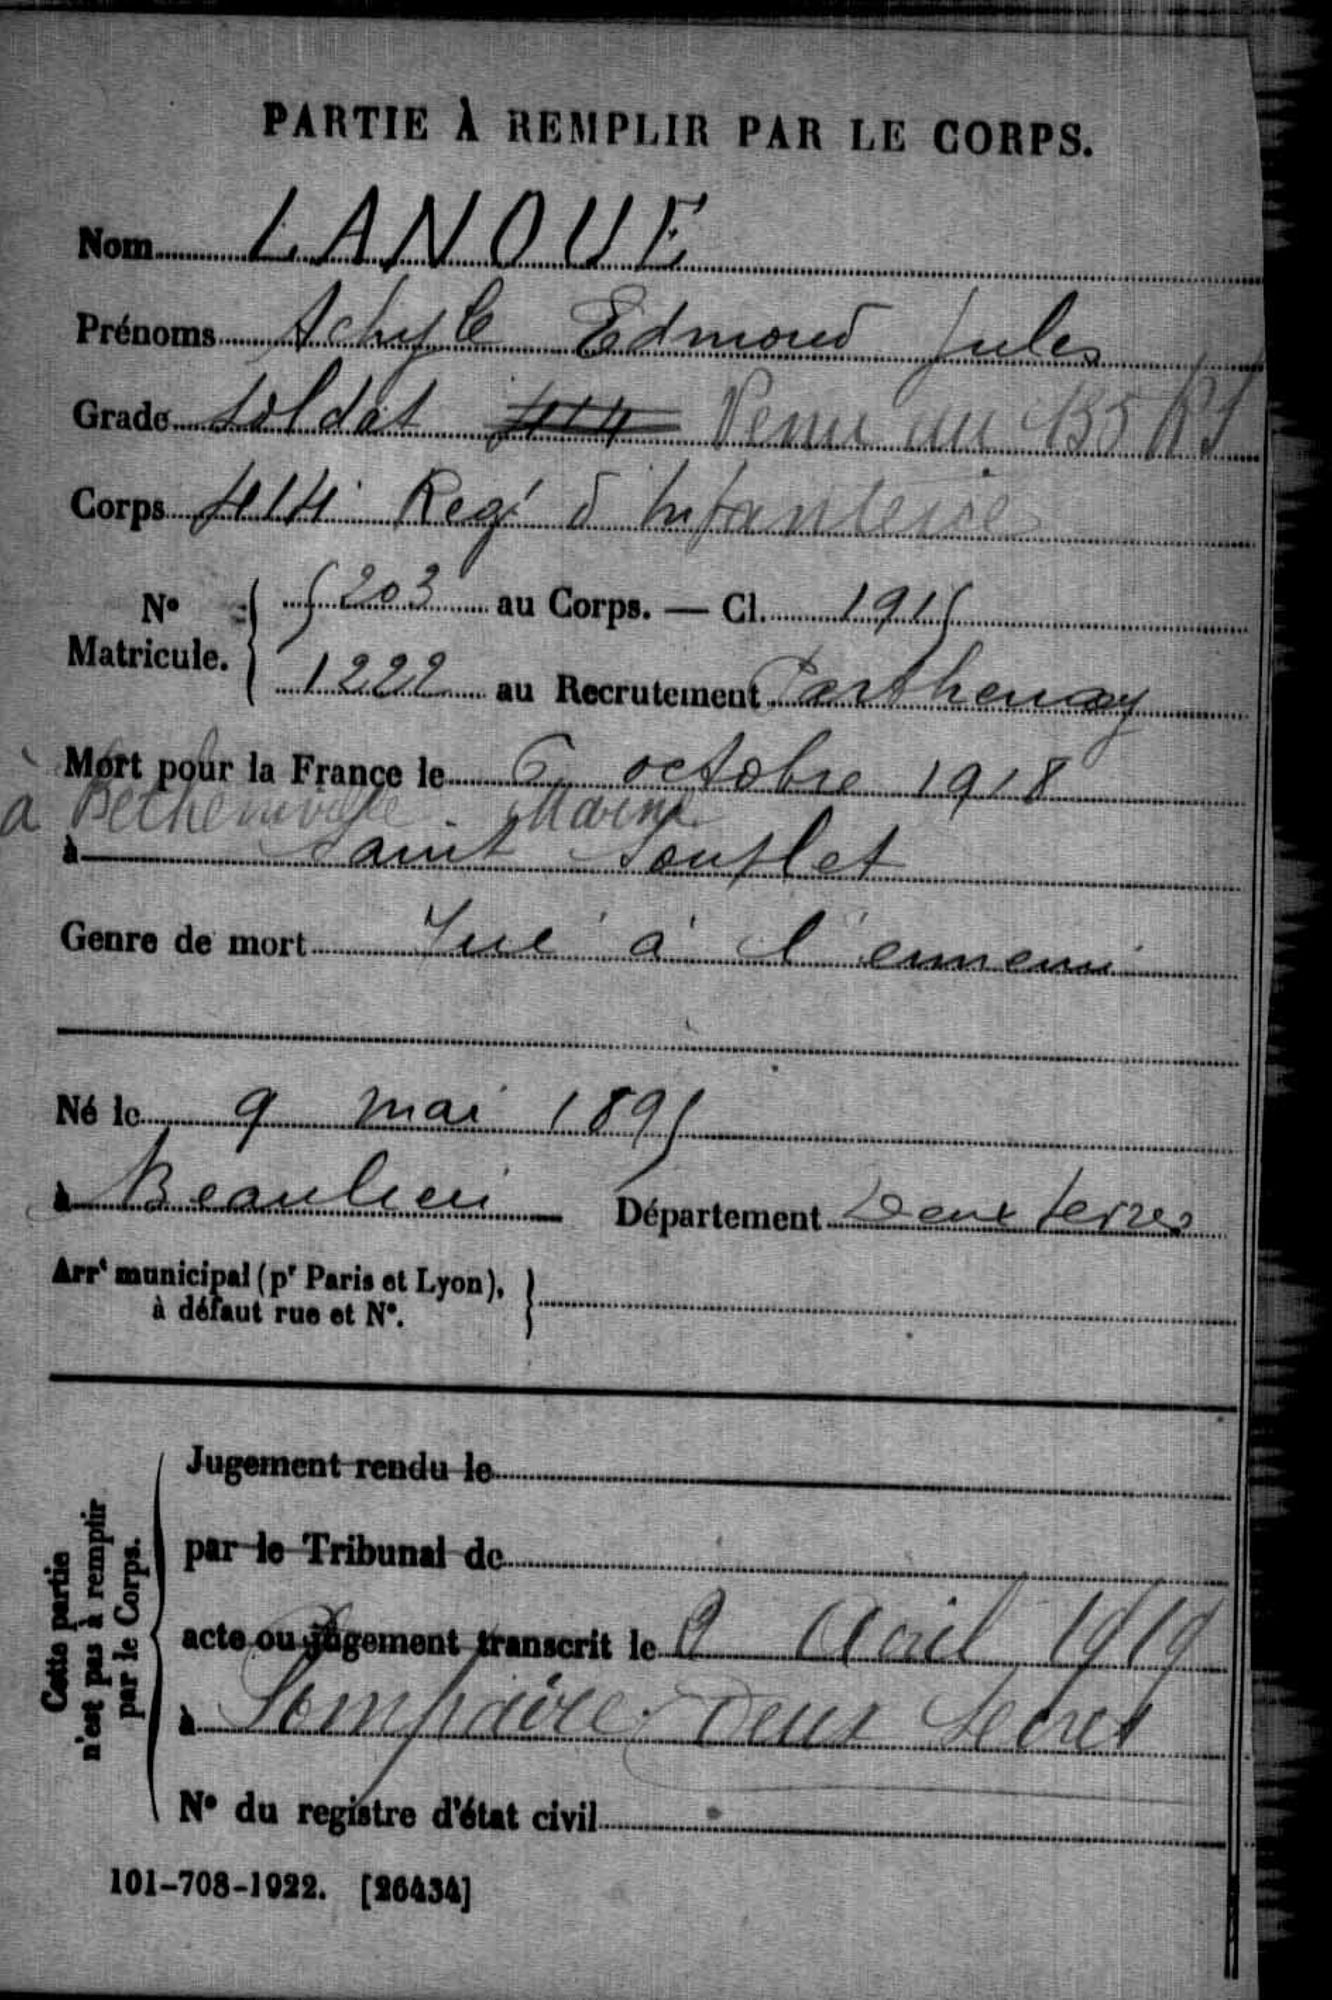 PARTIE À REMPLIR PAR LE CORPS.
Nom LANOUE
Prénoms Achyle Edmond Jules
Grade soldat 414 Venu du 135 RI
Corps 414 Regt d'Infanterie
N° Matricule. { 5203 au Corps. — Cl. 1915
1222 au Recrutement Parthenay
Mort pour la France le 6 octobre 1918
à Bétheniville Marne
à Saint Souplet
Genre de mort Tué à l'ennemi
Né le 9 mai 1895
à Beaulieu Département Deux Sevres
Arrt municipal (pr Paris et Lyon), à défaut rue et N°. }
Cette partie n'est pas à remplir par le Corps.
Jugement rendu le
par le Tribunal de
acte ou jugement transcrit le 9 Avril 1919
à Pompaire Deux Sevres
N° du registre d'état civil
101-708-1922. [26434]